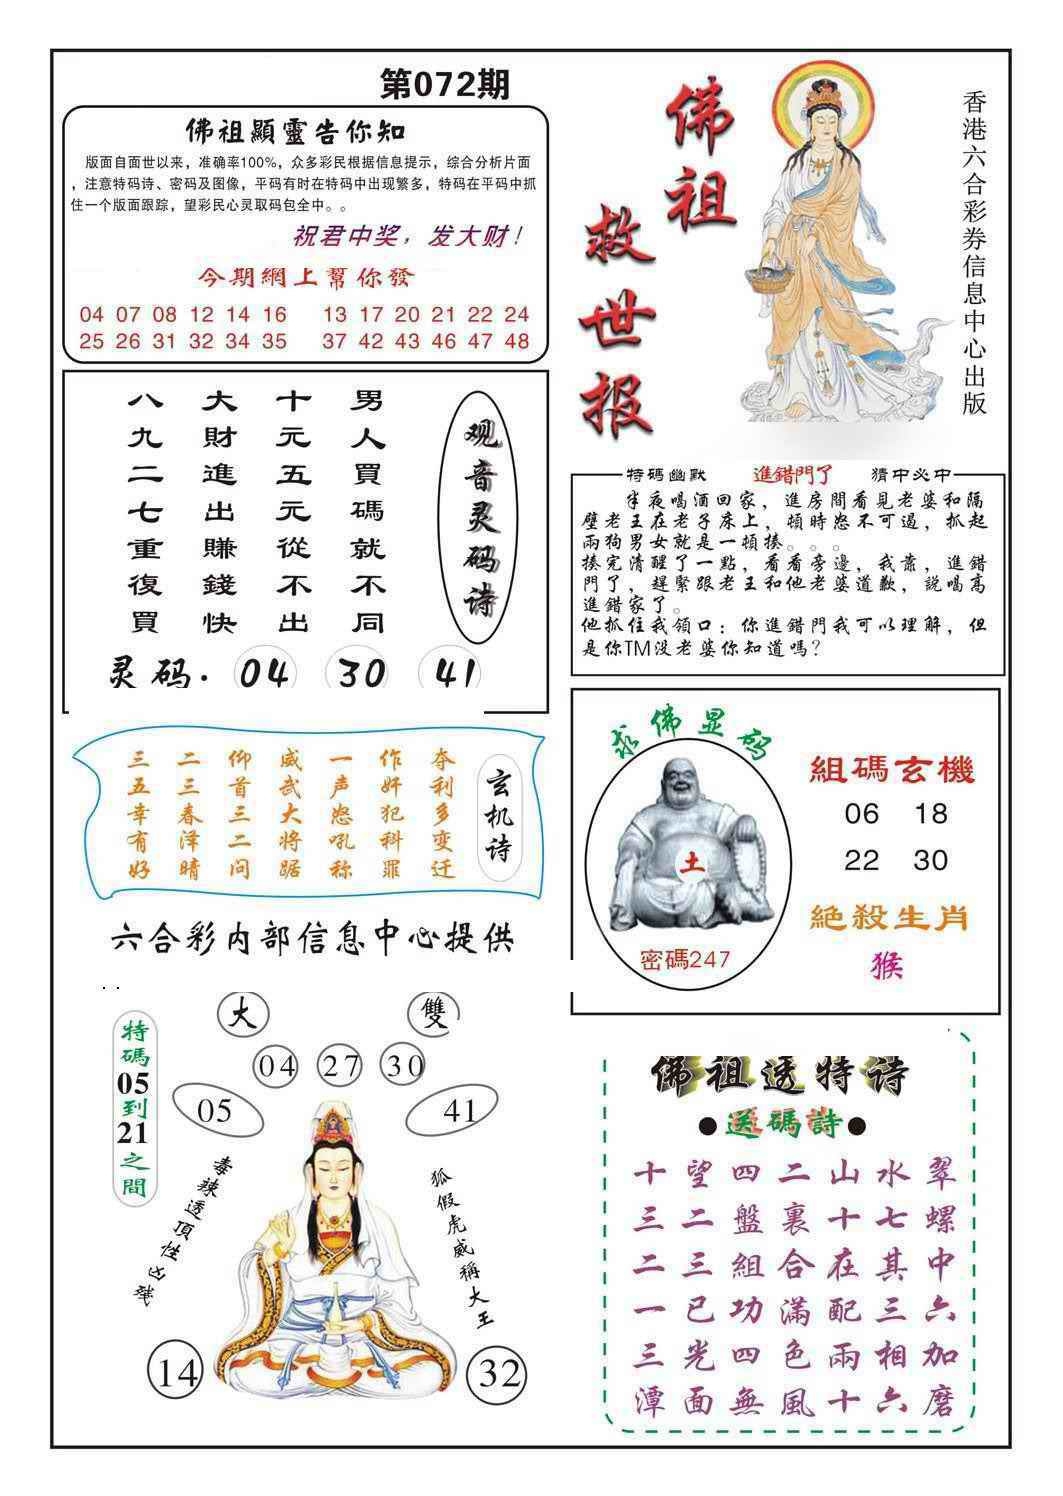 第072期
佛祖顯靈告你知
版面自面世以来，准确率100%，众多彩民根据信息提示，综合分析片面
，注意特码诗、密码及图像，平码有时在特码中出现繁多，特码在平码中抓
住一个版面跟踪，望彩民心灵取码包全中。。
祝君中奖，发大财！
今期網上幫你發
04 07 08 12 14 16 13 17 20 21 22 24
25 26 31 32 34 35 37 42 43 46 47 48
佛祖
救世报
香港六合彩券信息中心出版
观音灵码诗
男人買碼就不同
十元五元從不出
大財進出賺錢快
八九二七重復買
灵码. 04 30 41
特碼幽默 進錯門了 猜中必中
半夜喝酒回家，進房間看見老婆和隔
壁老王在老子床上，頓時怒不可遏，抓起
兩狗男女就是一頓揍。。。
揍完清醒了一點，看看旁邊，我靠，進錯
門了，趕緊跟老王和他老婆道歉，説喝高
進錯家了。
他抓住我領口：你進錯門我可以理解，但
是你TM没老婆你知道嗎？
玄机诗
夺利多变迁
作奸犯科罪
一声怒吼称
威武大将踞
仰首三二问
二三春泽晴
三五幸有好
六合彩内部信息中心提供
求佛显码
土
密碼247
組碼玄機
06 18
22 30
絶殺生肖
猴
特碼05到21之間
大 雙
04 27 30
05 41
毒辣透頂性凶残
狐假虎威稱大王
14 32
佛祖透特诗
●送碼詩●
十望四二山水翠
三二盤裏十七螺
二三組合在其中
一已功滿配三六
三光四色兩相加
潭面無風十六磨